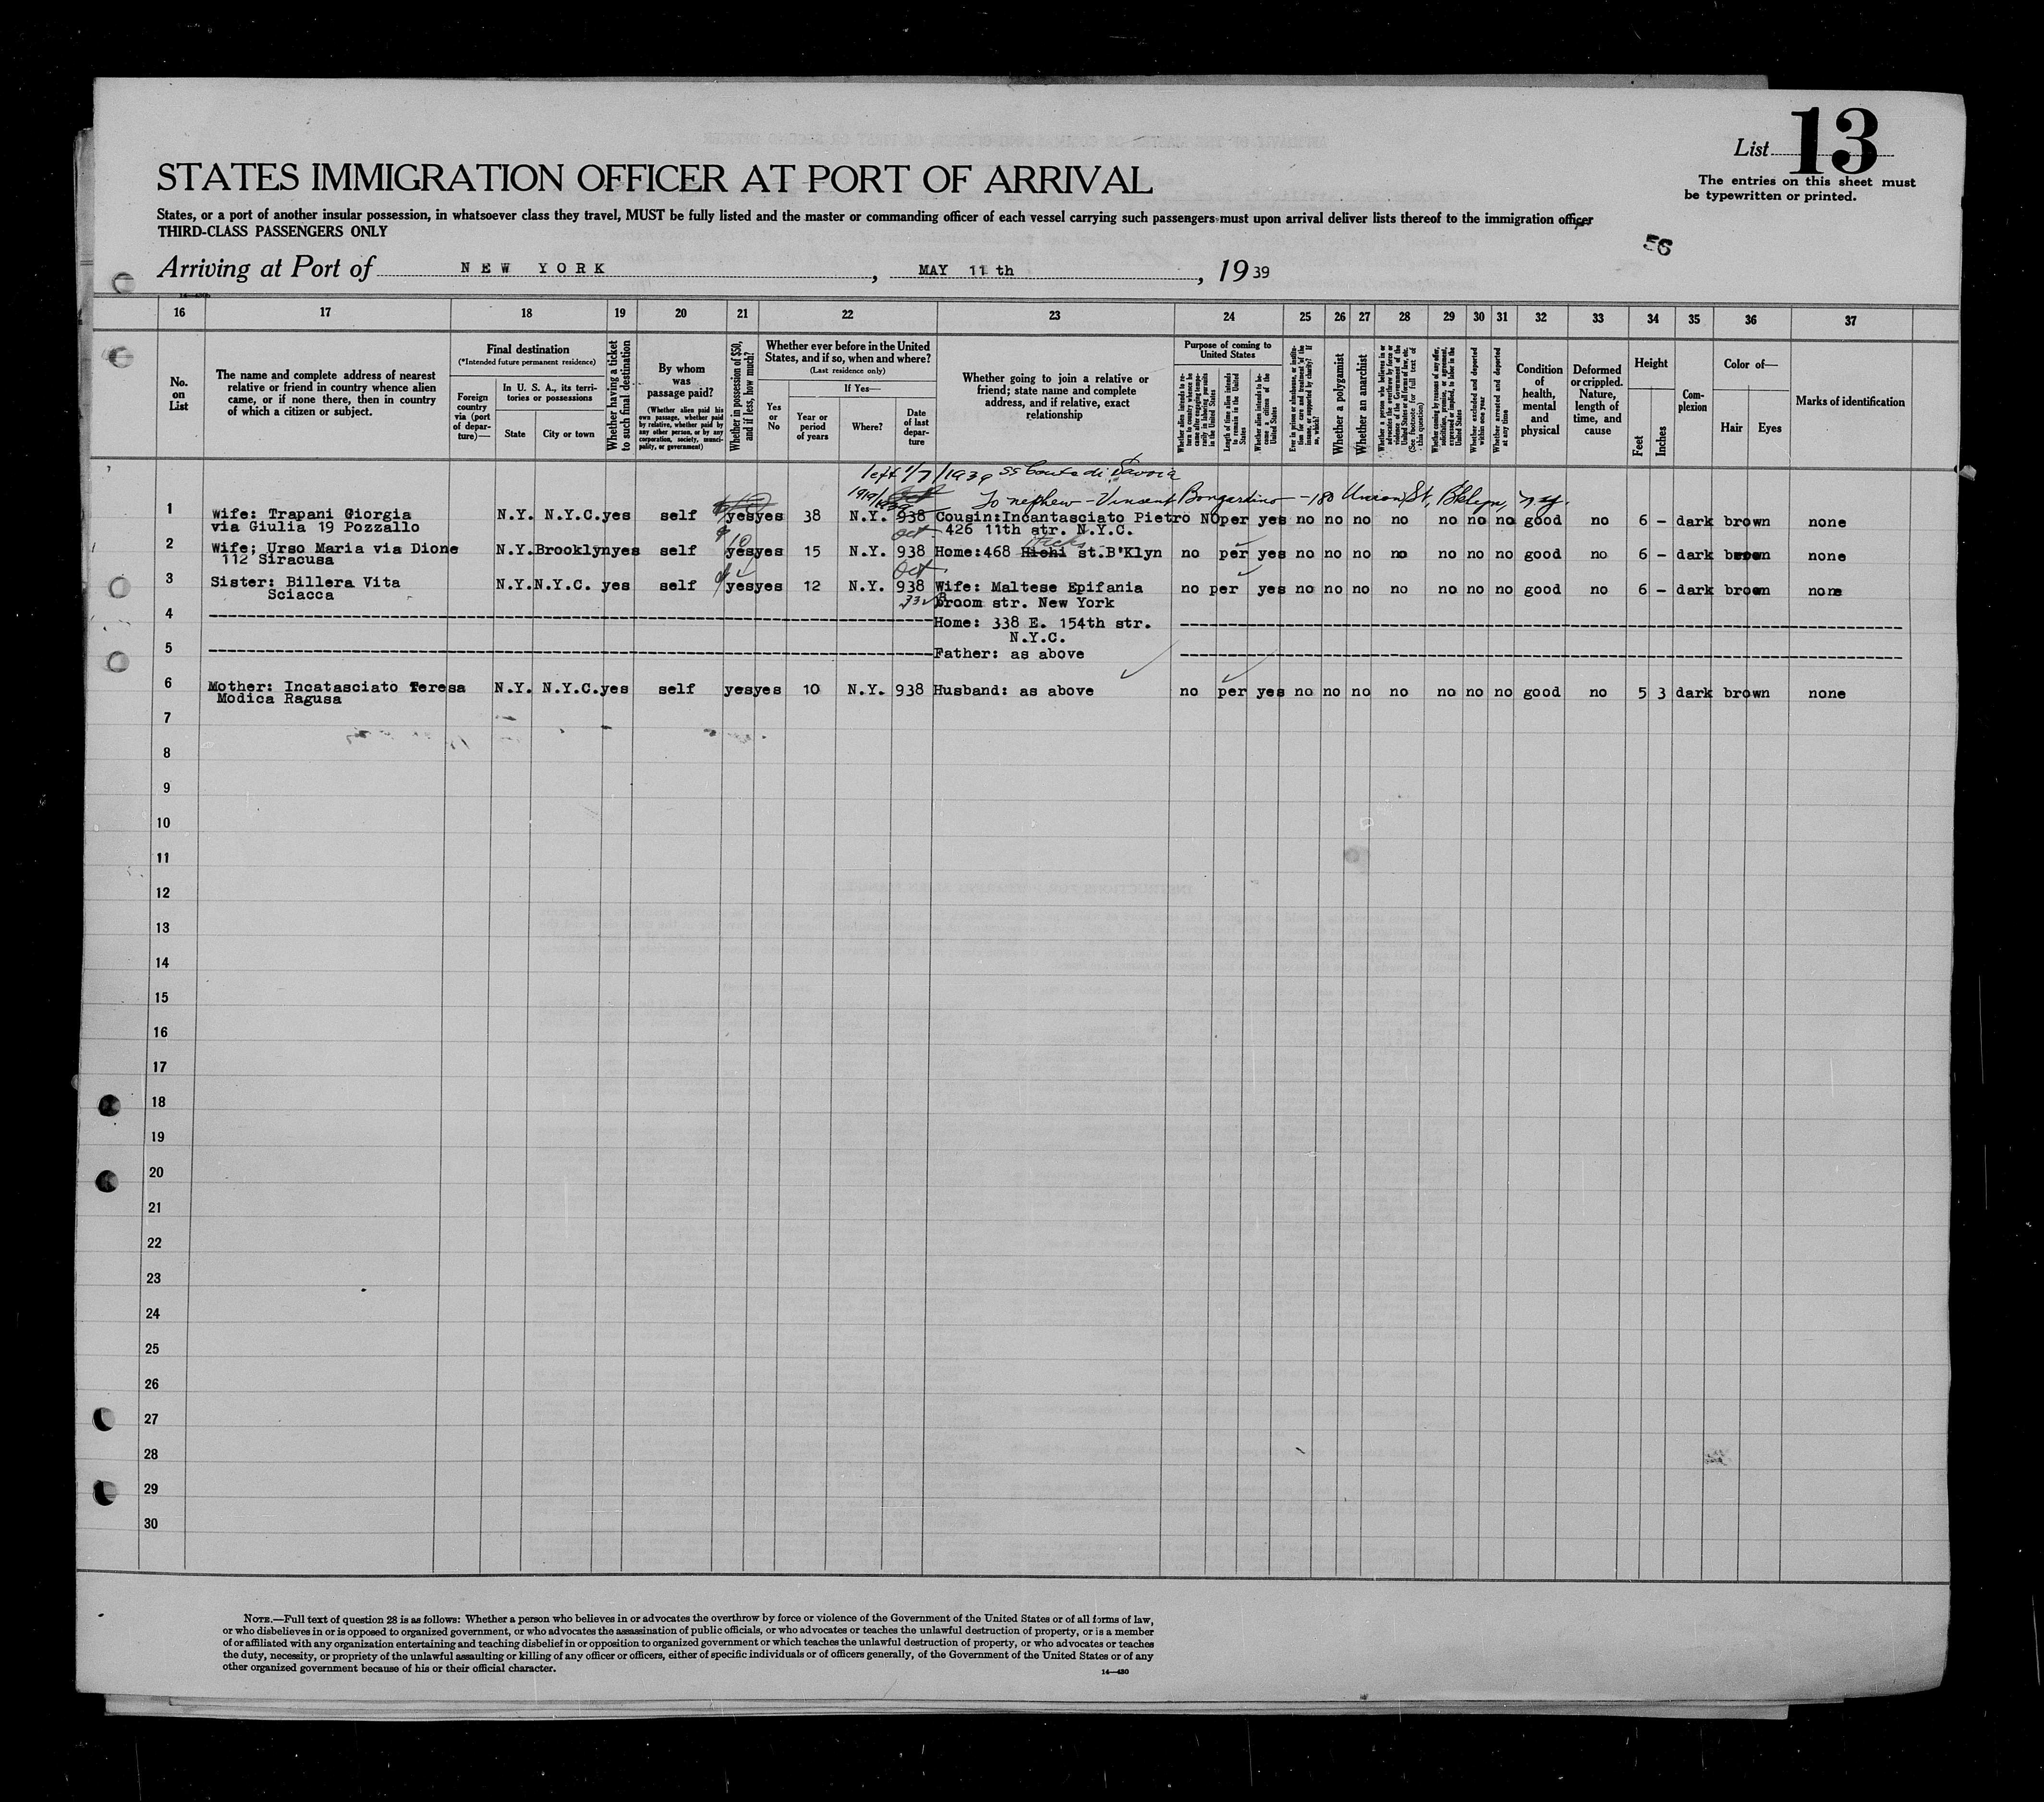 List 13
The entries on this sheet must
be typewritten or printed.
STATES IMMIGRATION OFFICER AT PORT OF ARRIVAL
States, or a port of another insular possession, in whatsoever class they travel, MUST be fully listed and the master or commanding officer of each vessel carrying such passengers must upon arrival deliver lists thereof to the immigration officer
THIRD-CLASS PASSENGERS ONLY
56
Arriving at Port of NEW YORK, MAY 11 th, 19 39
16 17 18 19 20 21 22 23 24 25 26 27 28 29 30 31 32 33 34 35 36 37
No. on List
The name and complete address of nearest relative or friend in country whence alien came, or if none there, then in country of which a citizen or subject.
Final destination
(*Intended future permanent residence)
Foreign country via (port of departure)—
In U. S. A., its territories or possessions
State
City or town
Whether having a ticket to such final destination
By whom was passage paid?
(Whether alien paid his own passage, whether paid by relative, whether paid by any other person, or by any corporation, society, municipality, or government)
Whether in possession of $50, and if less, how much?
Whether ever before in the United States, and if so, when and where?
(Last residence only)
Yes or No
If Yes—
Year or period of years
Where?
Date of last departure
Whether going to join a relative or friend; state name and complete address, and if relative, exact relationship
Purpose of coming to United States
Whether alien intends to return to country whence he came after engaging temporarily in laboring pursuits in the United States
Length of time alien intends to remain in the United States
Whether alien intends to become a citizen of the United States
Ever in prison or almshouse, or institution for care and treatment of the insane, or supported by charity? If so, which?
Whether a polygamist
Whether an anarchist
Whether a person who believes in or advocates the overthrow by force or violence of the Government of the United States or all forms of law, etc. (See footnote for full text of this question)
Whether coming by reasons of any offer, solicitation, promise, or agreement, expressed or implied, to labor in the United States
Whether excluded and deported within one year
Whether arrested and deported at any time
Condition of health, mental and physical
Deformed or crippled. Nature, length of time, and cause
Height
Feet
Inches
Complexion
Color of—
Hair
Eyes
Marks of identification
left 1/7/1939 SS Conte di Savoia
1919/1939 To nephew - Vincent Bongardino - 180 Union St, Bklyn, N.Y.
1 Wife: Trapani Giorgia N.Y. N.Y.C. yes self yes yes 38 N.Y. 938 Cousin:Incantasciato Pietro NO per yes no no no no no no no good no 6 - dark brown none
via Giulia 19 Pozzallo Oct 426 11th str. N.Y.C.
$10 Hicks
2 Wife; Urso Maria via Dione N.Y. Brooklyn yes self yes yes 15 N.Y. 938 Home:468 Hichi st.B'Klyn no per yes no no no no no no no good no 6 - dark brown none
112 Siracusa Oct
3 Sister: Billera Vita N.Y. N.Y.C. yes self yes yes 12 N.Y. 938 Wife: Maltese Epifania no per yes no no no no no no no good no 6 - dark brown none
Sciacca Broom str. New York
4 Home: 338 E. 154th str.
N.Y.C.
5 Father: as above
6 Mother: Incatasciato Teresa N.Y. N.Y.C. yes self yes yes 10 N.Y. 938 Husband: as above no per yes no no no no no no no good no 5 3 dark brown none
Modica Ragusa
7
8
9
10
11
12
13
14
15
16
17
18
19
20
21
22
23
24
25
26
27
28
29
30
NOTE.—Full text of question 28 is as follows: Whether a person who believes in or advocates the overthrow by force or violence of the Government of the United States or of all forms of law,
or who disbelieves in or is opposed to organized government, or who advocates the assassination of public officials, or who advocates or teaches the unlawful destruction of property, or is a member
of or affiliated with any organization entertaining and teaching disbelief in or opposition to organized government or which teaches the unlawful destruction of property, or who advocates or teaches
the duty, necessity, or propriety of the unlawful assaulting or killing of any officer or officers, either of specific individuals or of officers generally, of the Government of the United States or of any
other organized government because of his or their official character.
14—430